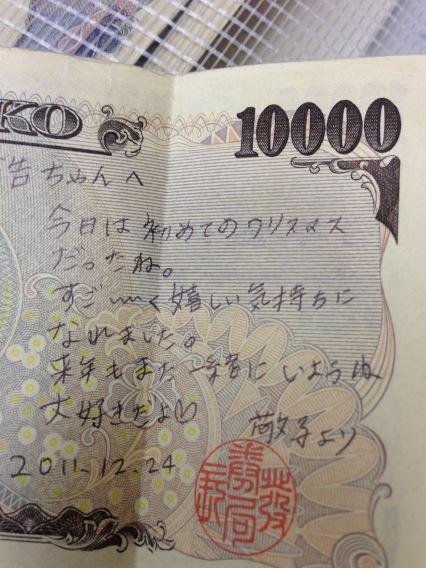 KO
10000
告ちゃんへ
今日は初めてのクリスマス
だったね。
すご〰く嬉しい気持ちに
なれました。
来年もまた一緒にいようね
大好きだよ♡
敬子より
2011.12.24